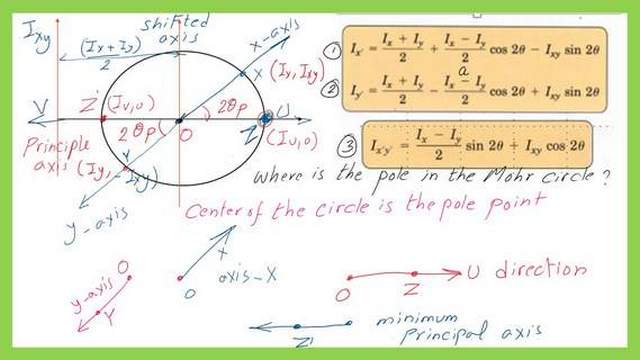 I_xy
shifted axis
(Ix+Iy)/2
x-axis
X (Ix, Ixy)
V
Z' (Iv,0)
2θp
2θp
O
Z
U
(Iu,0)
Principle axis
Y
(Iy, -Ixy)
y-axis
① I_x' = (I_x + I_y)/2 + (I_x − I_y)/2 cos 2θ − I_xy sin 2θ
a
② I_y' = (I_x + I_y)/2 − (I_x − I_y)/2 cos 2θ + I_xy sin 2θ
③ I_x'y' = (I_x − I_y)/2 sin 2θ + I_xy cos 2θ
where is the pole in the Mohr circle?
Center of the circle is the pole point
O
y-axis
Y
X
O
axis-X
O
Z
U direction
Z'
minimum
Principal axis